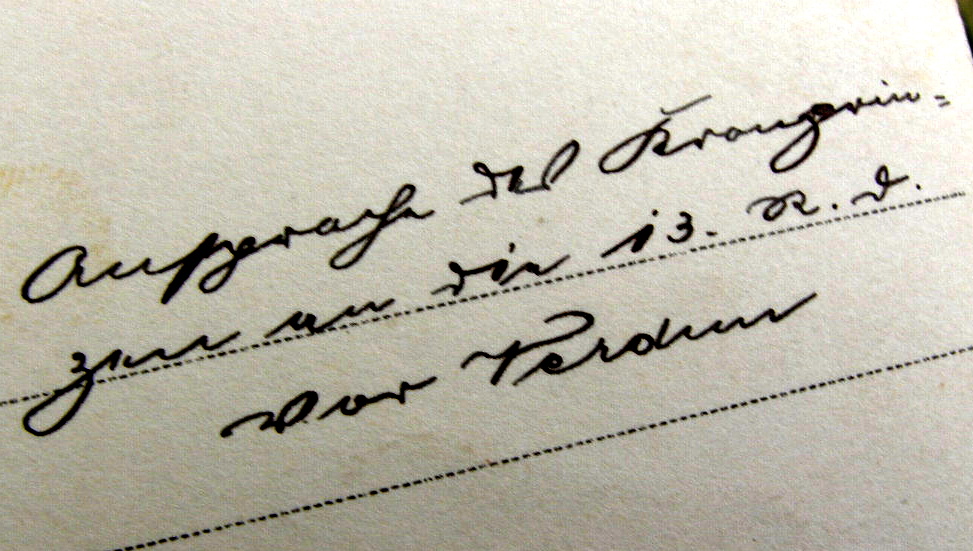 Ansprache des Kronprin=
zen an die 13. R. D.
vor Verdun